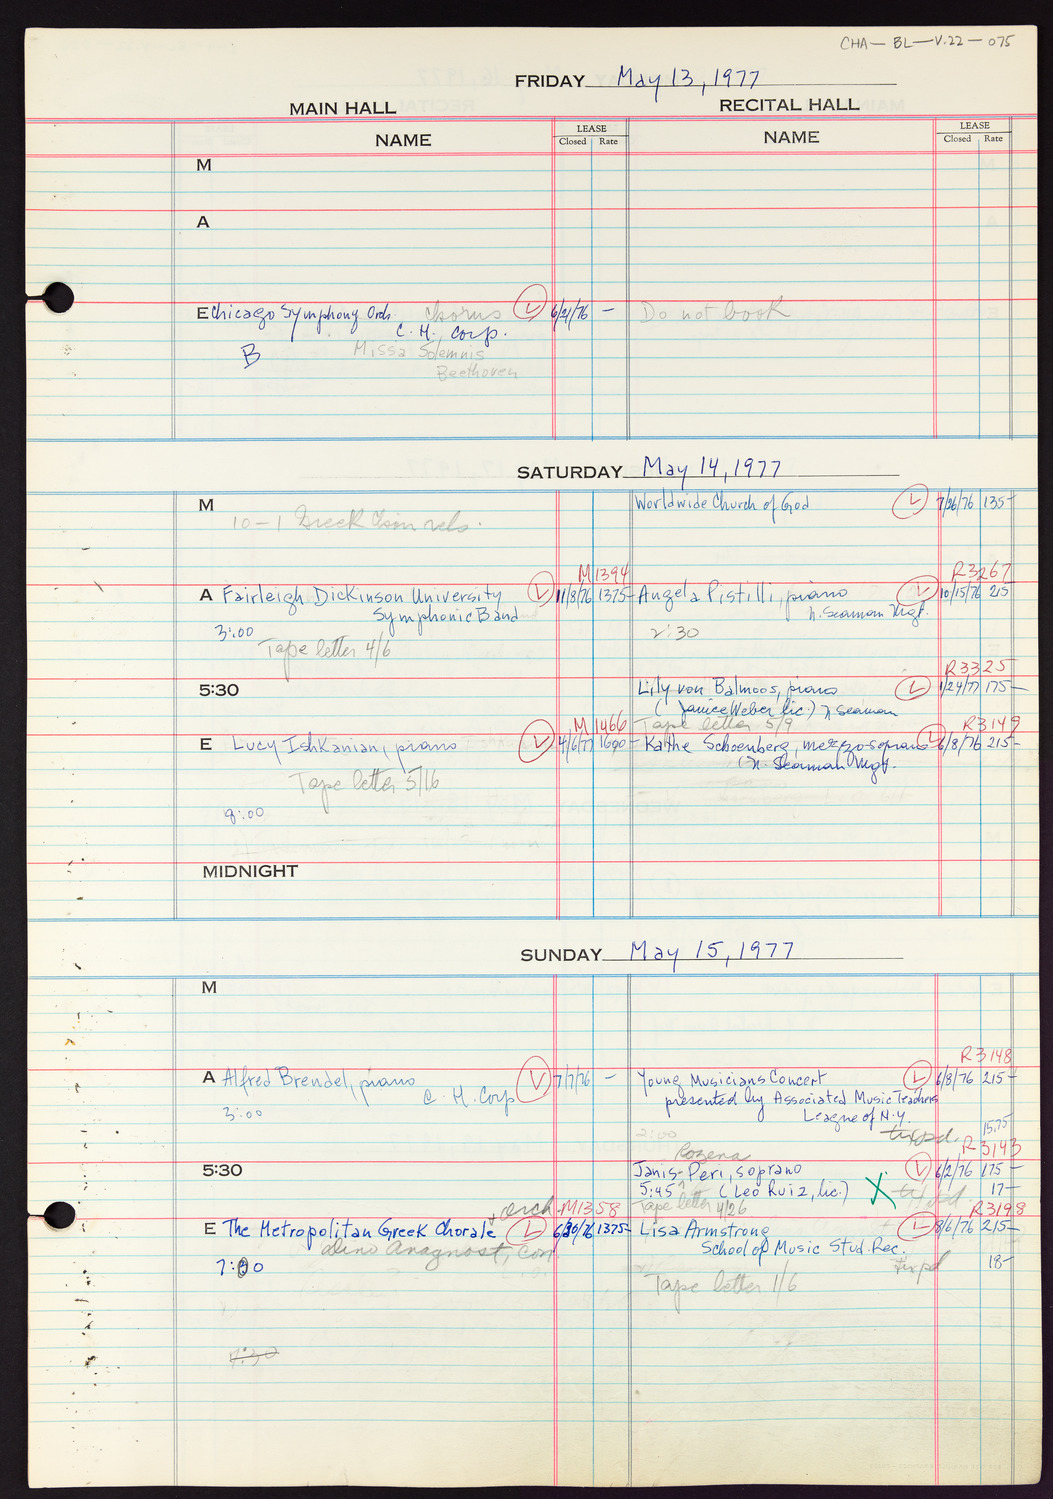 CHA-BL-V.22-075
FRIDAY May 13, 1977
MAIN HALL RECITAL HALL
NAME LEASE Closed Rate NAME LEASE Closed Rate
M
A
E Chicago Symphony Orch. Chorus 6/21/76 — Do not book
C. H. Corp.
B Missa Solemnis
Beethoven
SATURDAY May 14, 1977
M Worldwide Church of God 7/26/76 135-
10-1 Greek Chorale
M1394 R3267
A Fairleigh Dickinson University 11/8/76 1375- Angela Pistilli, piano 10/15/76 215
Symphonic Band N. Seaman Mgt.
3:00 2:30
Tape letter 4/6
R3325
5:30 Lily von Balmoos, piano 1/24/77 175-
(Janice Weber lic.) N Seaman
M1466 Tape letter 5/9 R3149
E Lucy Ishkanian, piano 4/6/77 1690- Kathe Schoenberg, mezzo-soprano 6/8/76 215-
(N. Seaman Mgt.
Tape letter 5/16
8:00
MIDNIGHT
SUNDAY May 15, 1977
M
R3148
A Alfred Brendel, piano 7/7/76 — Young Musicians Concert 6/8/76 215-
C. H. Corp presented by Associated Music Teachers
3:00 League of N.Y.
2:00 tix pd. 15.75
Rozena R3143
5:30 Janis-Peri, soprano 6/2/76 175-
5:45 (Leo Ruiz, lic.) X 17-
orch M1358 Tape letter 4/26 R3198
E The Metropolitan Greek Chorale 6/30/76 1375- Lisa Armstrong 8/6/76 215-
Dino Anagnost, con School of Music Stud. Rec.
7:00 tix pd 18-
Tape letter 1/6
7:30